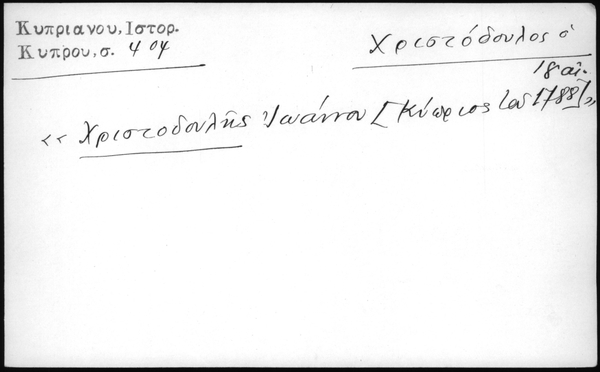 Κυπριανου, Ιστορ.
Κυπρου, σ. 404
Χριστόδουλος ὁ
18 αἰ.
«Χριστοδουλῆς Ἰωάννου [Κύπριος τοῦ 1788]»